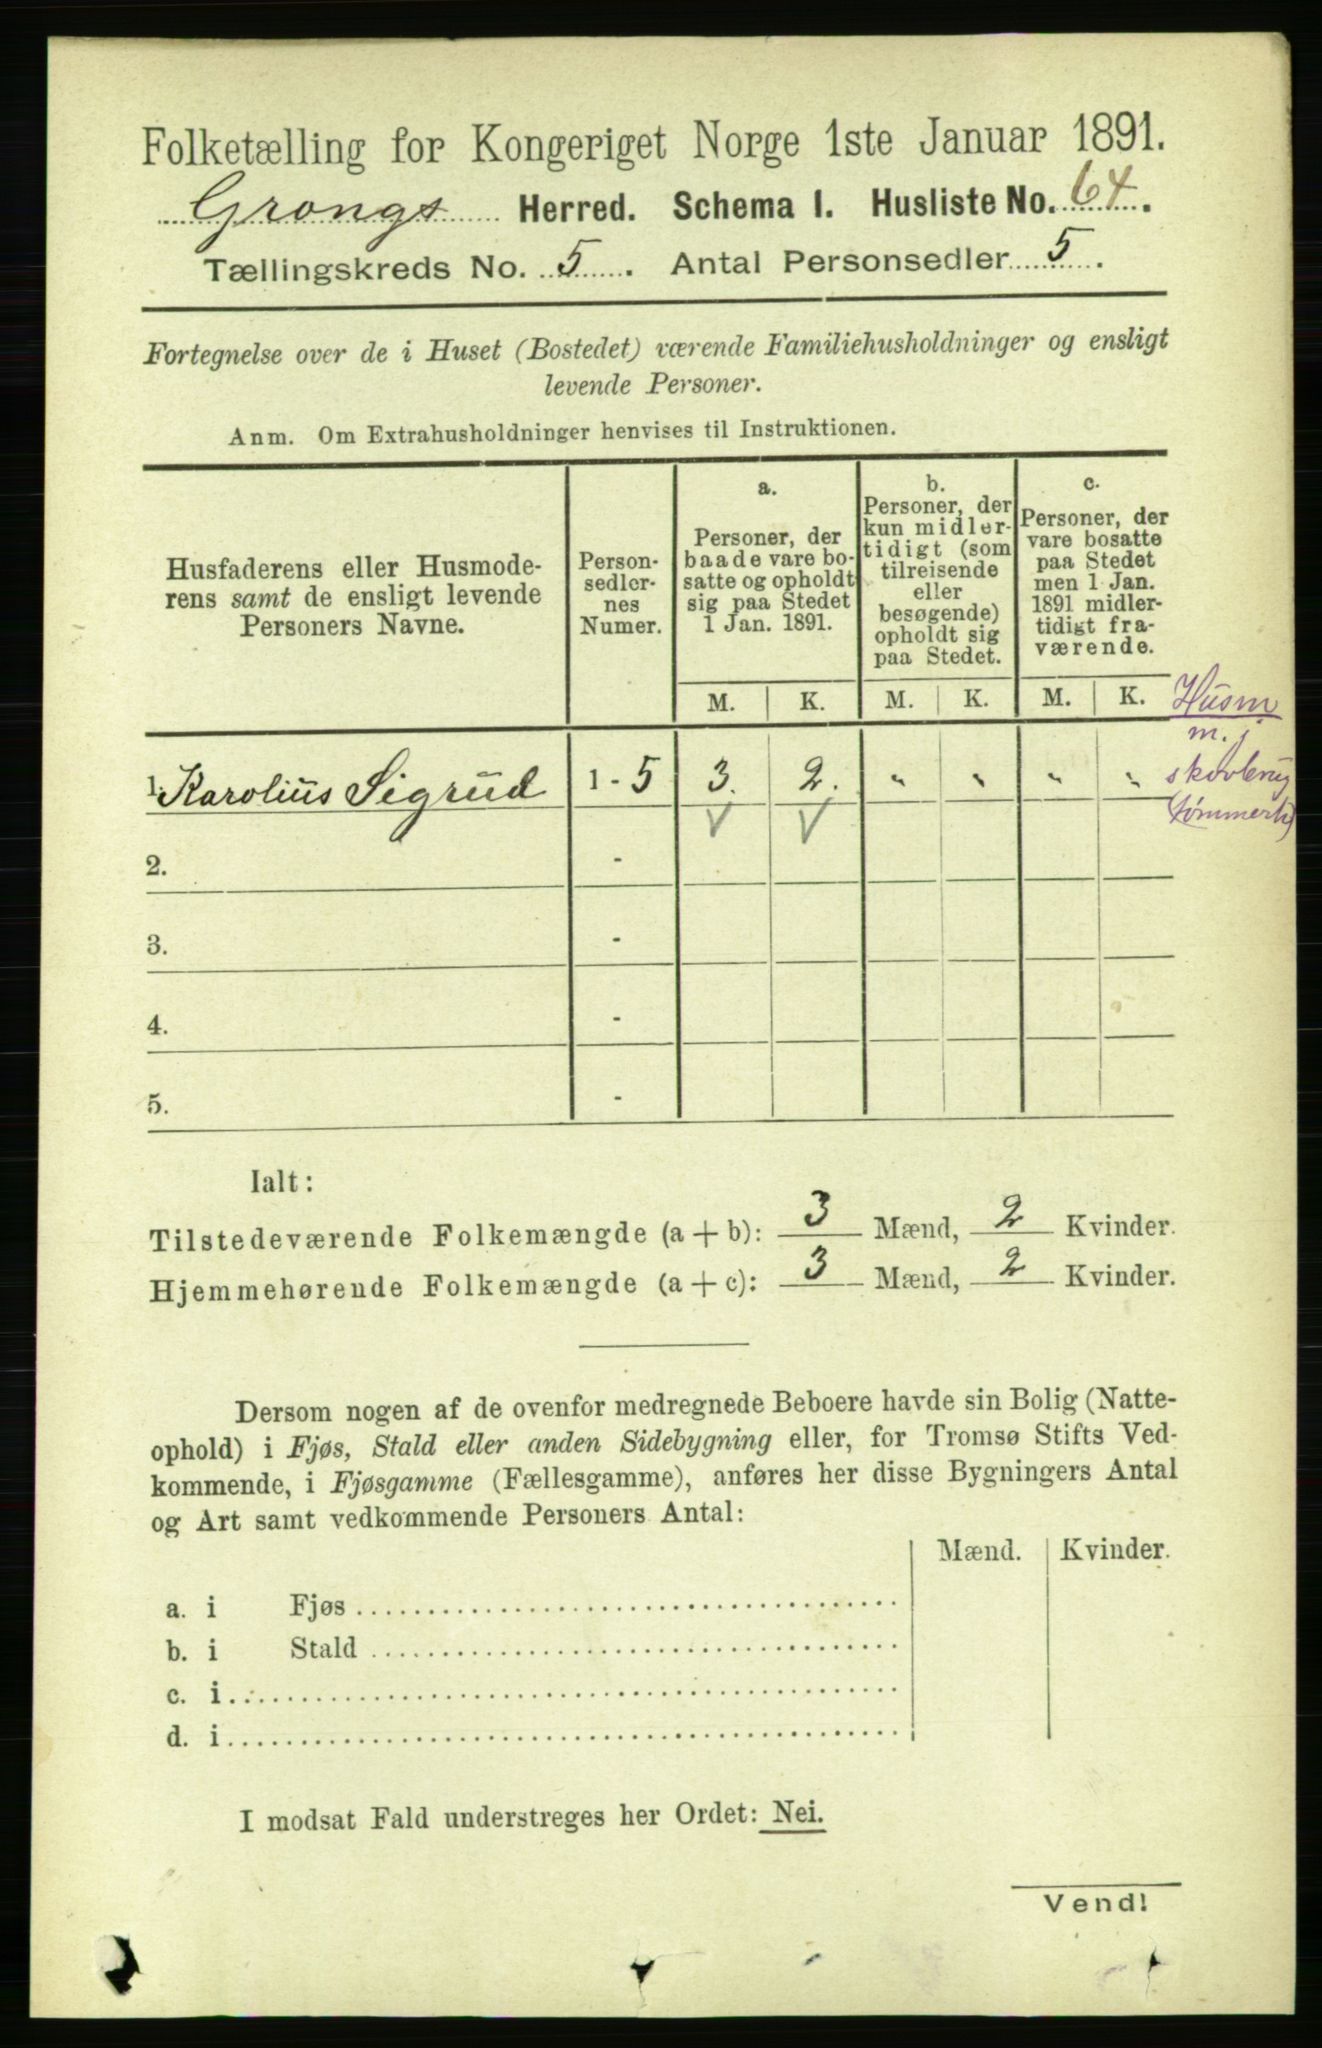 Folketælling for Kongeriget Norge 1ste Januar 1891.
Grongs Herred. Schema I. Husliste No. 64.
Tællingskreds No. 5. Antal Personsedler 5.
Fortegnelse over de i Huset (Bostedet) værende Familiehusholdninger og ensligt
levende Personer.
Anm. Om Extrahusholdninger henvises til Instruktionen.
Husfaderens eller Husmode-
rens samt de ensligt levende
Personers Navne.
Person-
sedler-
nes
Numer.
a.
Personer, der
baade vare bo-
satte og opholdt
sig paa Stedet
1 Jan. 1891.
b.
Personer, der
kun midler-
tidigt (som
tilreisende
eller
besøgende)
opholdt sig
paa Stedet.
c.
Personer, der
vare bosatte
paa Stedet
men 1 Jan.
1891 midler-
tidigt fra-
værende.
M. K. M. K. M. K.
Husm
m. j
skovbrug
(tømmerh)
1. Karolius Sigrud 1 - 5 3. 2. " " " "
2. -
3. -
4. -
5. -
Ialt:
Tilstedeværende Folkemængde (a + b): 3 Mænd, 2 Kvinder.
Hjemmehørende Folkemængde (a + c): 3 Mænd, 2 Kvinder.
Dersom nogen af de ovenfor medregnede Beboere havde sin Bolig (Natte-
ophold) i Fjøs, Stald eller anden Sidebygning eller, for Tromsø Stifts Ved-
kommende, i Fjøsgamme (Fællesgamme), anføres her disse Bygningers Antal
og Art samt vedkommende Personers Antal:
Mænd. Kvinder.
a. i Fjøs
b. i Stald
c. i
d. i
I modsat Fald understreges her Ordet: Nei.
Vend!